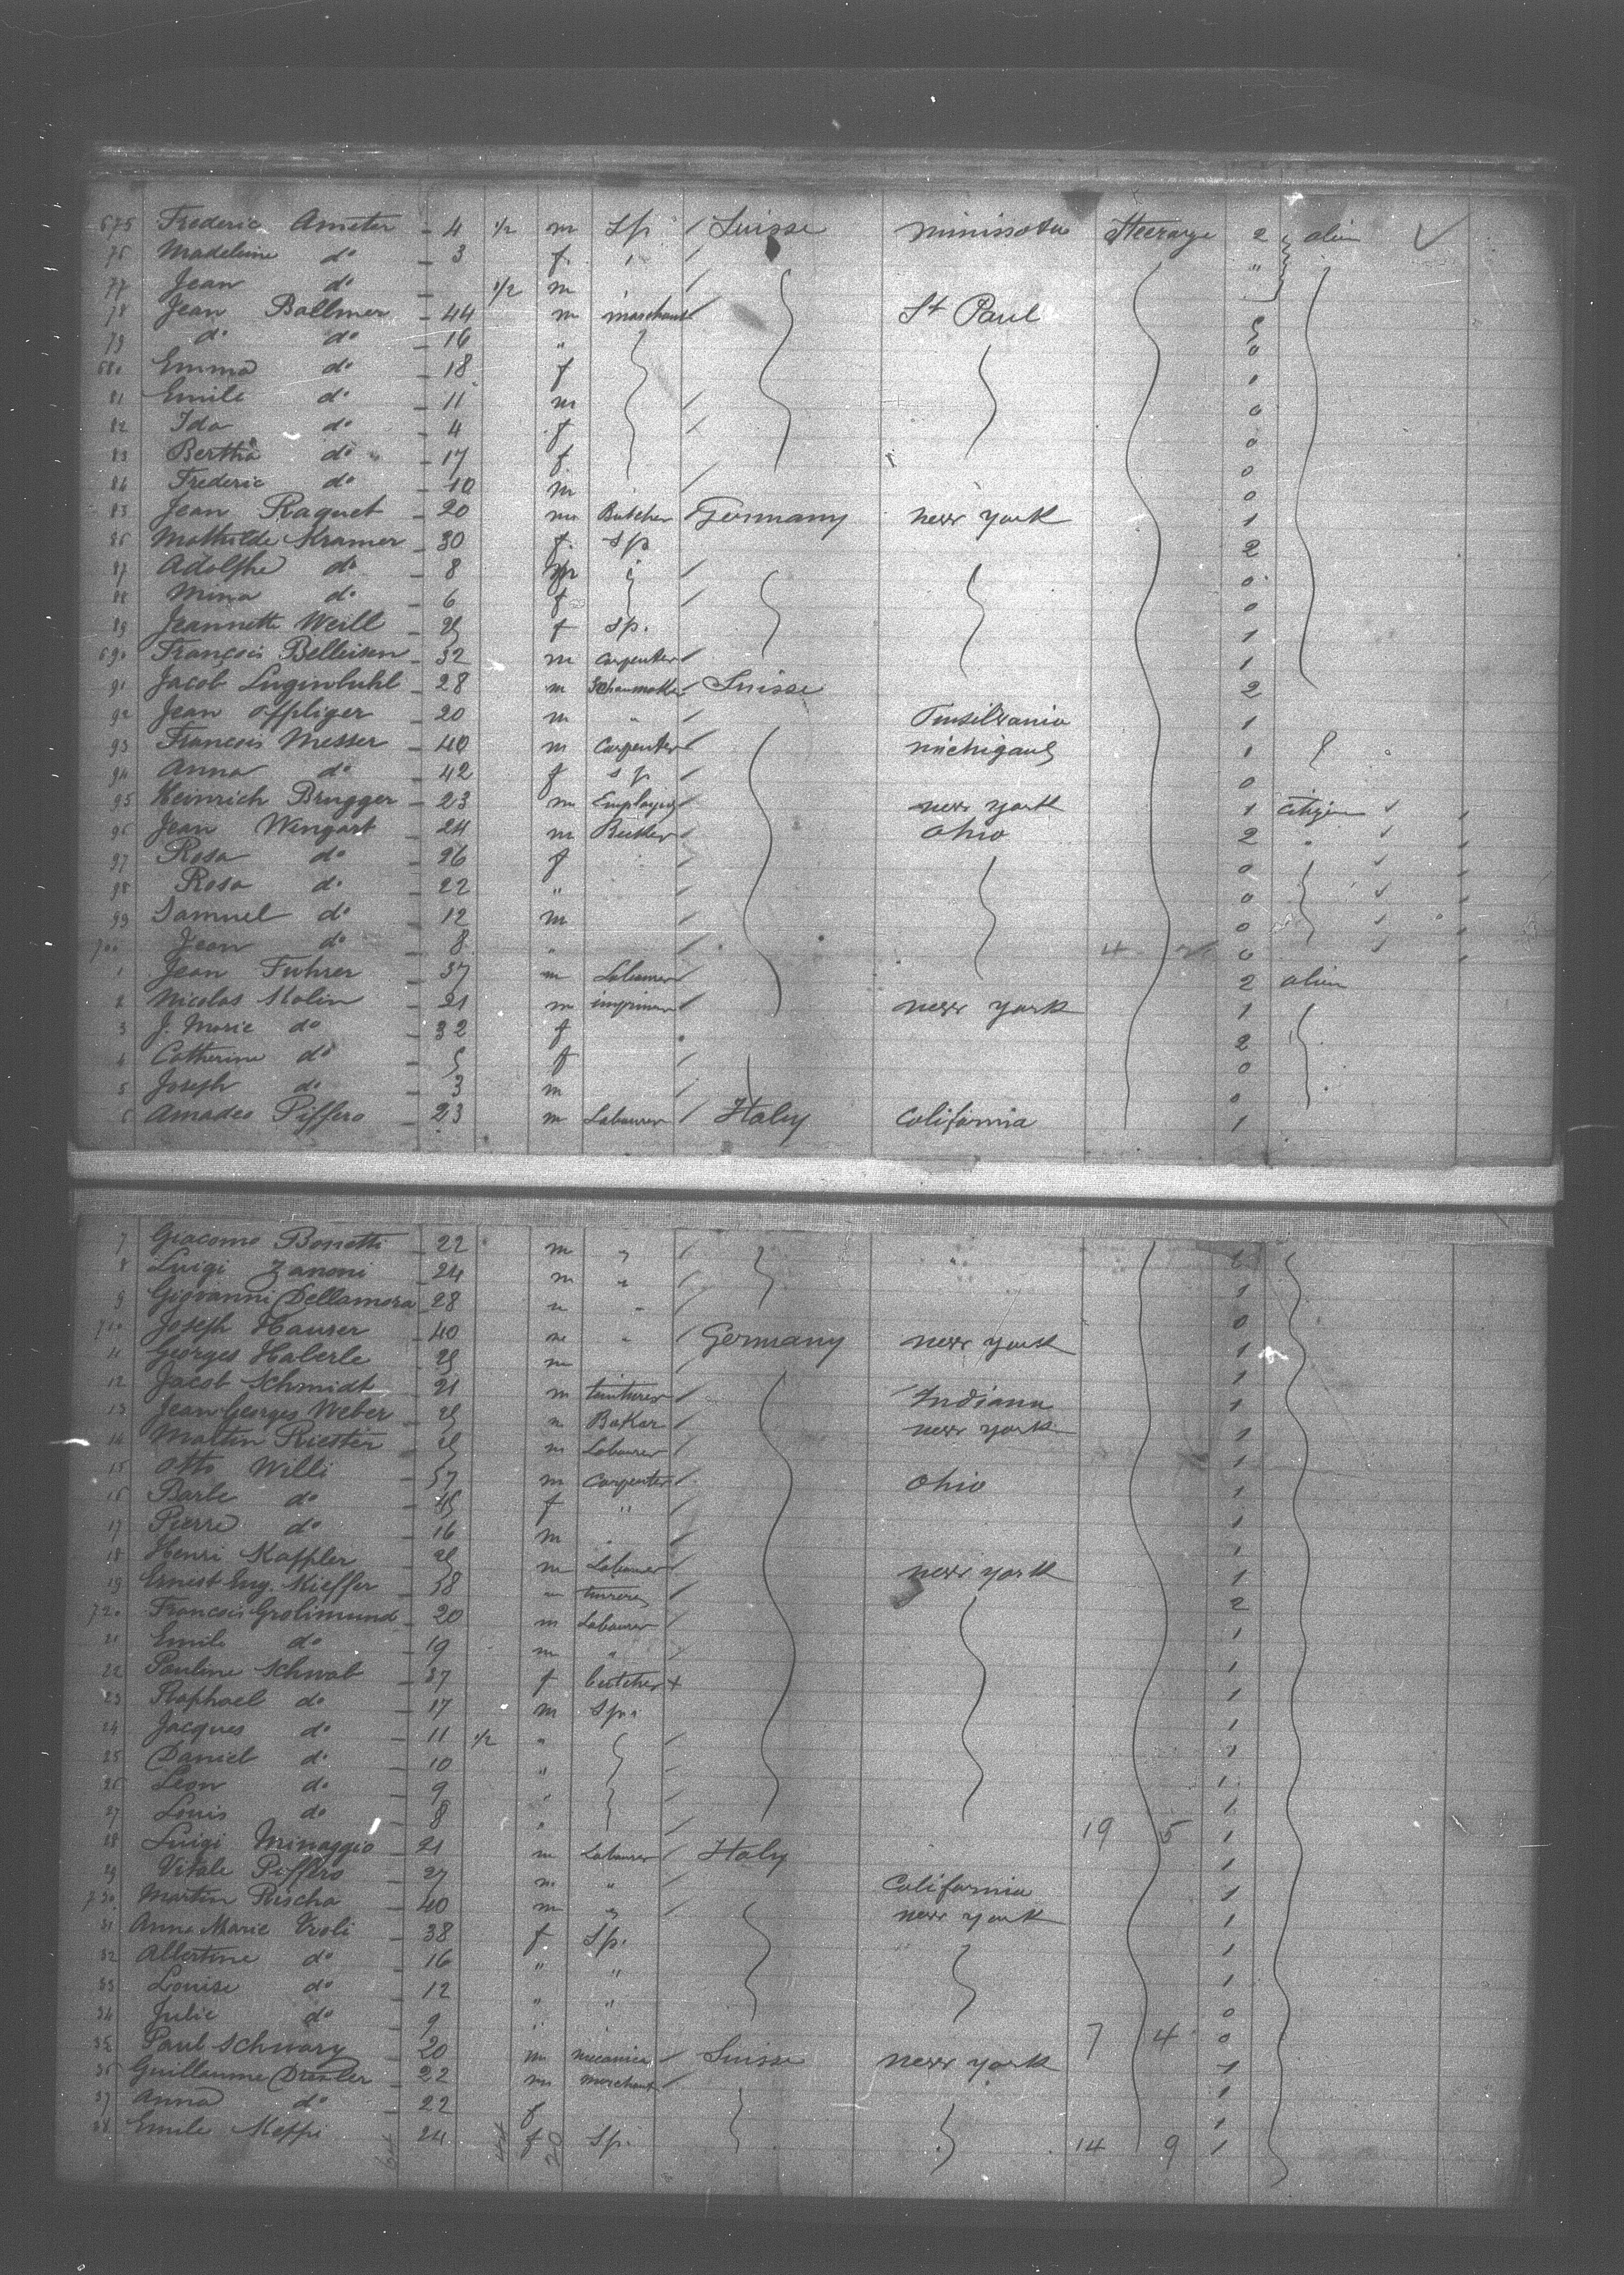 675 Frederic Ameter - 4 1/2 m Sp. / Suisse minissota Steerage 2 alien
76 Madeleine do - 3 f. " / "
77 Jean do - 1/2 m /
78 Jean Ballmer - 44 m marchant / St Paul 5
79 do do - 16 " 0
680 Emma do - 18 f 1
81 Emile do - 11 m / 0
82 Ida do - 4 f / 0
83 Bertha do - 17 f 0
84 Frederic do - 10 m / 0
85 Jean Raquet - 20 m Butcher / Germany new york 1
86 Mathilde Kramer - 30 f. sp 2
87 Adolphe do - 8 m / 0
88 Mina do - 6 f / 0
89 Jeannette Weill - f sp. 1
690 François Belleisen - 32 m carpenter / 1
91 Jacob Luginbuhl - 28 m Schaumaker / Suisse 2
92 Jean Oppliger - 20 m " / Pinsilvania 1
93 Francois Messer - 40 m carpenter / michigan 1
94 Anna do - 42 f sp / 0
95 Heinrich Brugger - 23 m Employe / new york 1 citizen
96 Jean Wingart - 24 m / ohio 2 "
97 Rosa do - 26 f / 0
98 Rosa do - 22 " / 0
99 Samuel do - 12 m / 0
700 Jean do - 8 " / 4 0
1 Jean Fuhrer - 37 m Labourer / 2 alien
2 Nicolas Kolin - 21 m imprimeur / new york 1
3 J. Marie do - 32 f 2
4 Catherine do - 5 f / 0
5 Joseph do - 3 m / 0
6 Amadeo Piffero - 23 m Labourer / Italy California 1
7 Giacomo Bonetti - 22 m " /
8 Luigi Zanoni - 24 m " / 1
9 Giovanni Dellamora - 28 m " / 0
710 Joseph Hauser - 40 m " / Germany new york 1
11 Georges Haberle - m / 1
12 Jacob Schmidt - 21 m teinturer / Indiana 1
13 Jean Georges Weber - m Baker / new york 1
14 Martin Riester - m Labourer / 1
15 Otto Willi - 57 m carpenter / ohio 1
16 Barbe do - f " / 1
17 Pierre do - 16 m " / 1
18 Henri Kappler - m Labourer / new york 1
19 Ernest Eug. Kieffer - 38 " / 2
720 Francois Grolimund - 20 m Labourer / 1
21 Emile do - 19 m " / 1
22 Pauline Schwab - 37 f butcher + 1
23 Raphael do - 17 m Sp. 1
24 Jacques do - 11 1/2 " / 1
25 Daniel do - 10 " / 1
26 Leon do - 9 " / 1
27 Louis do - 8 " / 19 5 1
28 Luigi Minaggio - 21 m Labourer / Italy 1
29 Vitale Piffero - 27 m " / California 1
730 Martin Rischa - 40 m " / new york 1
31 Anna Marie Vroli - 38 f Sp. 1
32 Albertine do - 16 " " 1
33 Louise do - 12 " " 0
34 Julie do - 9 " 7 4 0
35 Paul Schwary - 20 m mecanica / Suisse new york 1
36 Guillaume Drexler - 22 m merchant / 1
37 Anna do - 22 f 1
38 Emile Keppi - 24 f Sp. 14 9 1